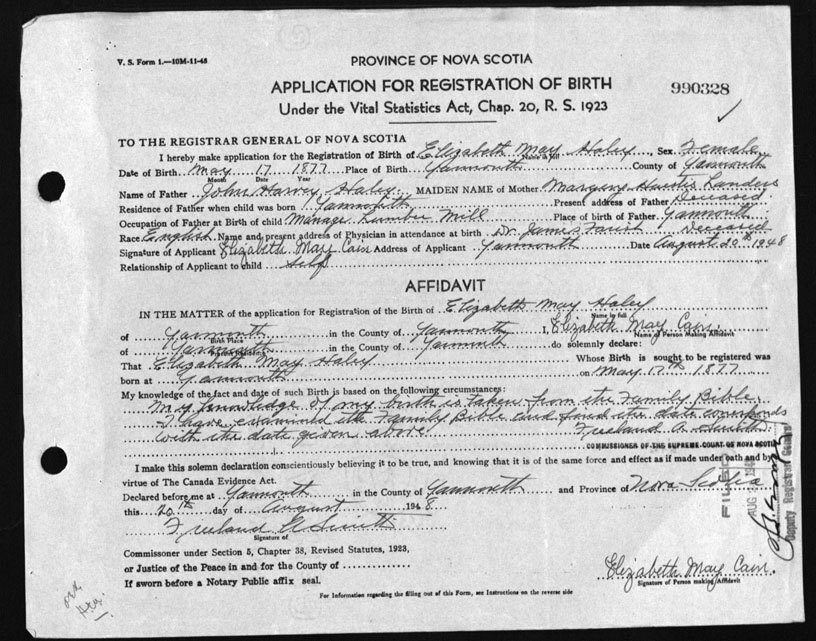 V. S. Form 1.—10M-11-45
PROVINCE OF NOVA SCOTIA
APPLICATION FOR REGISTRATION OF BIRTH
990328
Under the Vital Statistics Act, Chap. 20, R. S. 1923
TO THE REGISTRAR GENERAL OF NOVA SCOTIA
I hereby make application for the Registration of Birth of Elizabeth May Haley, Sex Female
Name in full
Date of Birth May 17 1877 Place of Birth Yarmouth County of Yarmouth
Month Date Year
Name of Father John Harvey Haley MAIDEN NAME of Mother Landers
Residence of Father when child was born Yarmouth Present address of Father Deceased
Occupation of Father at Birth of child Manager Lumber Mill Place of birth of Father Yarmouth
Race English Name and present address of Physician in attendance at birth Dr. James Deceased
Signature of Applicant Elizabeth May Cain Address of Applicant Yarmouth Date August 20th 1948
Relationship of Applicant to child self
AFFIDAVIT
IN THE MATTER of the application for Registration of the Birth of Elizabeth May Haley
Name in full
of Yarmouth in the County of Yarmouth I, Elizabeth May Cain,
Birth Place Name of Person Making Affidavit
of Yarmouth in the County of Yarmouth do solemnly declare:
That Elizabeth May Haley Whose Birth is sought to be registered was
born at Yarmouth on May 17th 1877
My knowledge of the fact and date of such Birth is based on the following circumstances:
My knowledge of my birth is taken from the Family Bible.
I have examined the Family Bible and find the date corresponds
with the date given above. Freeland A. Smith
COMMISSIONER OF THE SUPREME COURT OF NOVA SCOTIA
I make this solemn declaration conscientiously believing it to be true, and knowing that it is of the same force and effect as if made under oath and by
virtue of The Canada Evidence Act.
Declared before me at Yarmouth in the County of Yarmouth and Province of Nova Scotia
this 20th day of August 1948
Freeland A Smith
Signature of
Commissioner under Section 5, Chapter 38, Revised Statutes, 1923,
or Justice of the Peace in and for the County of
If sworn before a Notary Public affix seal.
Elizabeth May Cain.
Signature of Person making Affidavit
For Information regarding the filling out of this Form, see Instructions on the reverse side
FILED
AUG
Deputy Registrar General